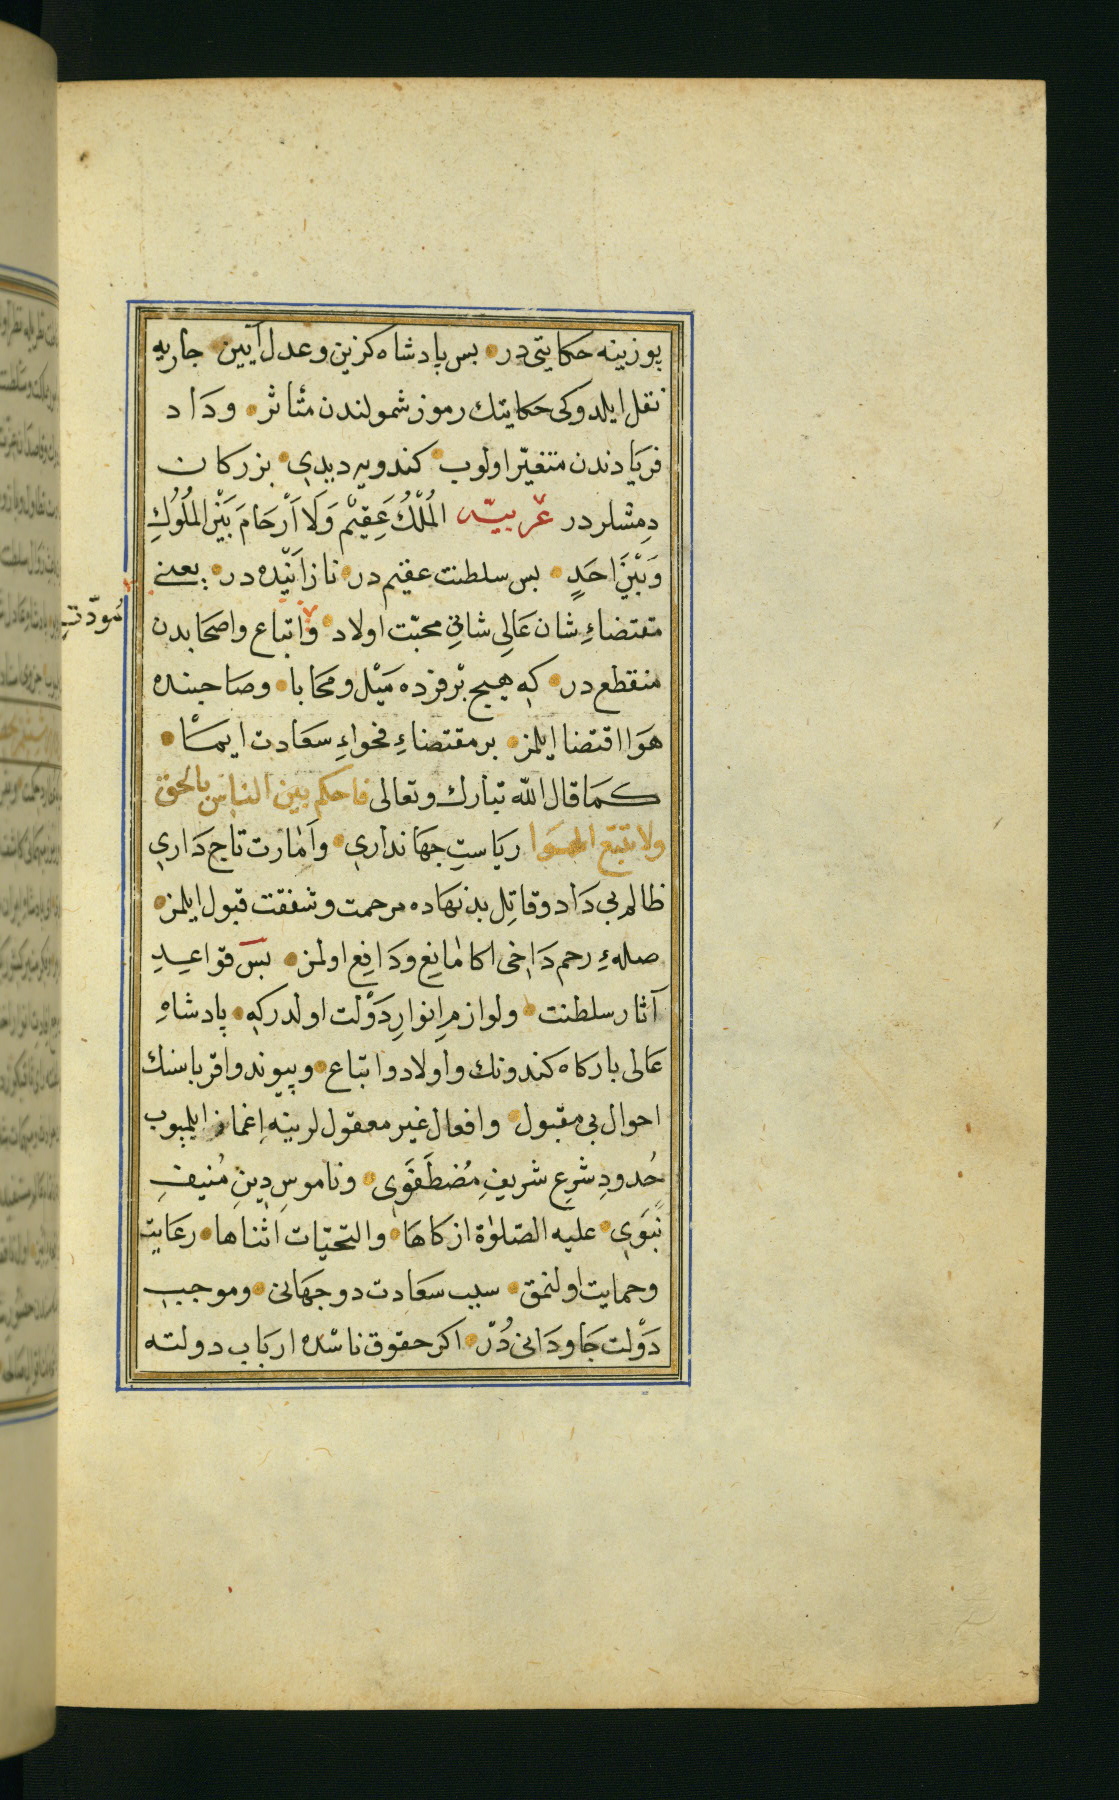 پوزینه حکایتی در • بس پادشاه کزین وعدل آیین • جاریه
نقل ایلدوکی حکایتك رموز شمولندن متأثر • وداد
فریادندن متغیّر اولوب • کندویه دیدی • بزرکان
دمشلردر عربیّه المُلْكُ عَقِیْمٌ وَلَا اَرْحَامَ بَیْنَ المُلُوكِ
وَبَیْنَ اَحَدٍ • بس سلطنت عقیم در • نازاینده در • یعنی
مقتضاءِ شان عَالِی شانی محبّت اولاد • واتباع واصحابدن
مودّت
منقطع در • که هیچ بر فرده مَیْل ومحابا • وصاحبنده
هَوَا اقتضا ایلمز • بر مقتضاءِ فحواءِ سعادت ایما •
کما قال الله تبارك وتعالی فاحکم بین الناس بالحق
ولا تتبع الهوا ریاستِ جهانداری • واَمارت تاج دَاری
ظالم بی دَاد وقاتِل بدنهاده مرحمت وشفقت قبول ایلمز •
صلهءِ رحم دَاخی اکا مانع ودَافع اولمز • بس قواعدِ
آثار سلطنت • ولوازمِ انوارِ دَوْلت اولدر که • پادشاهِ
عَالی بارکاه کندونك واولاد واتباع • وپیوند واقرباسنك
احوال بی مقبول • وافعال غیر معقول لرینه اِغماز ایلمیوب
حُدودِ شرعِ شریفِ مُصْطَفَوِی • وناموسِ دِینِ مُنیفِ
نَبَوِی • علیه الصّلوٰة ازکاها • والتحیّات اثناها • رعَایت
وحمایت اولنمق • سبب سعَادت دوجهَانی • وموجبِ
دَوْلت جَاودَانی دُرْ • اکر حقوق ناشده ارباب دولته